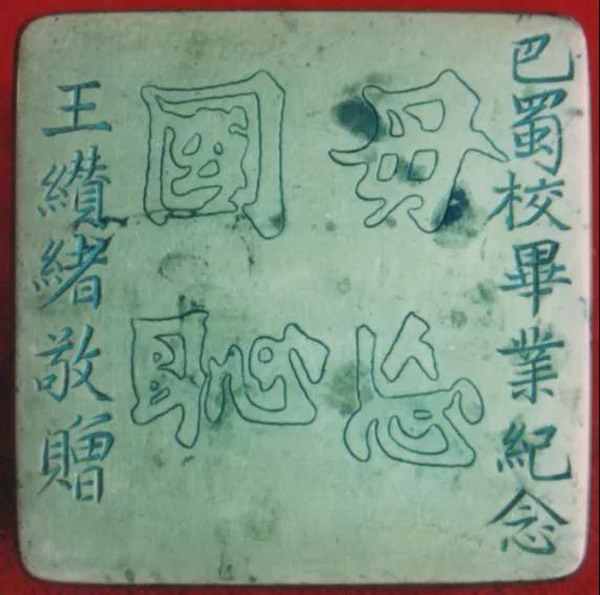 巴蜀校畢業紀念
毋忘
國恥
王纘緒敬贈